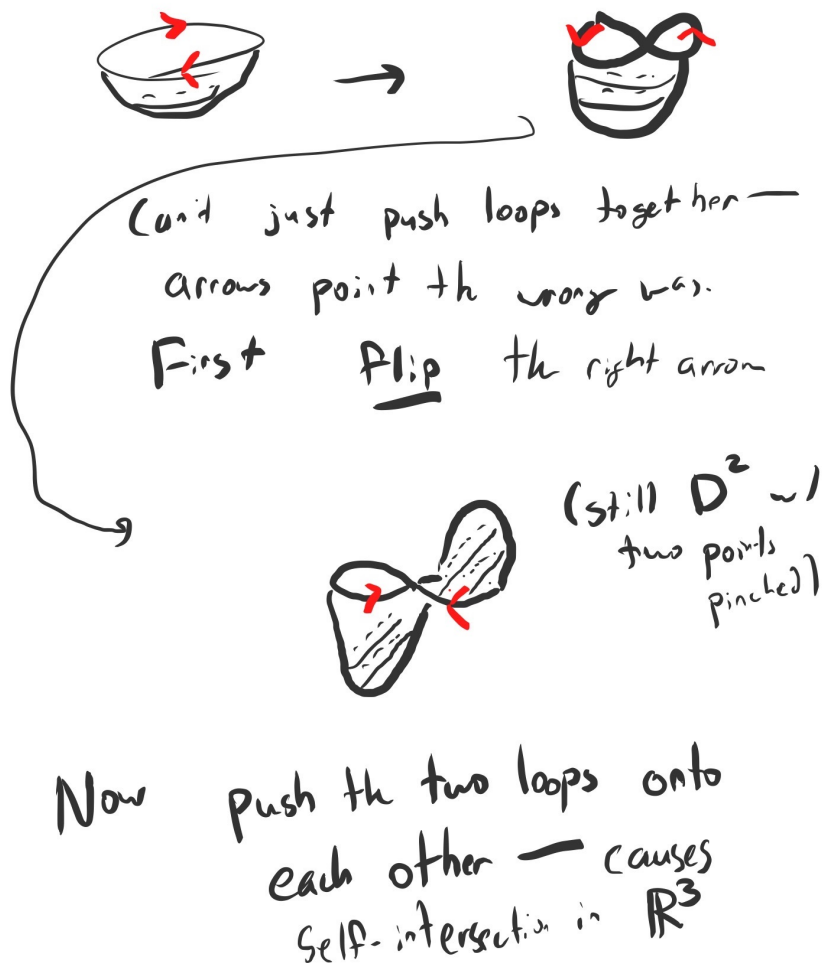 Can't just push loops together —
arrows point th wrong way.
First flip th right arrow
(still D² w/
two points
pinched)
Now push th two loops onto
each other — causes
Self-intersection in ℝ³